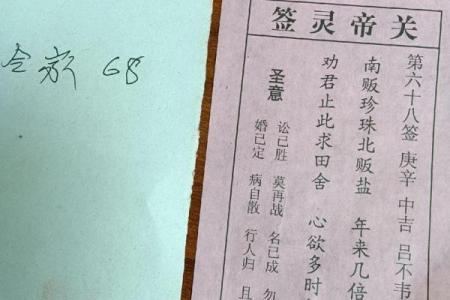 68
关帝灵签
第六十八签 庚辛 中吉 吕不韦
南贩珍珠北贩盐 年来几倍
劝君止此求田舍 心欲多时
圣意
讼已胜 莫再战 名已成 勿
婚已定 病自散 行人归 且